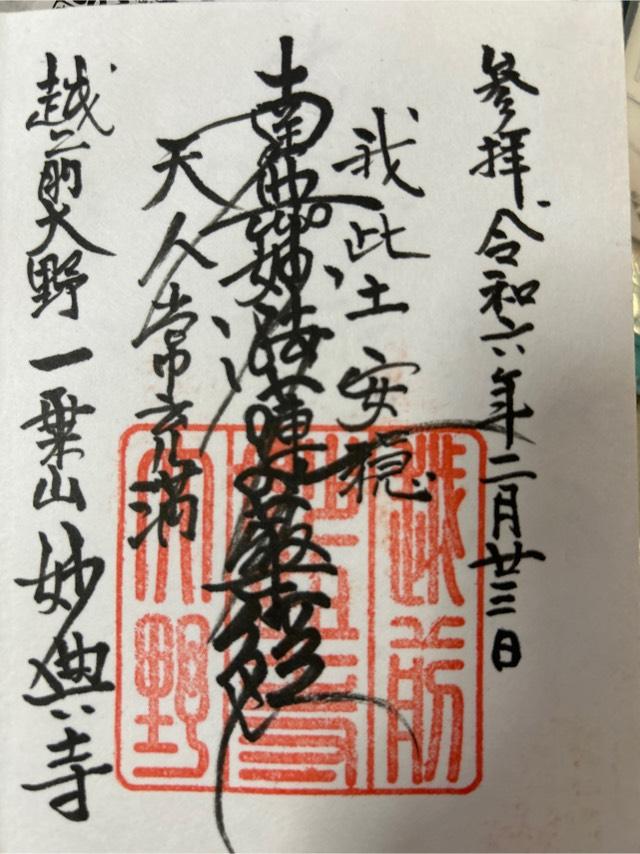 参拝 令和六年二月廿三日
我此土安穏
南無妙法蓮華経
天人常充満
越前大野 一乗山 妙典寺
越前
妙典寺
大野